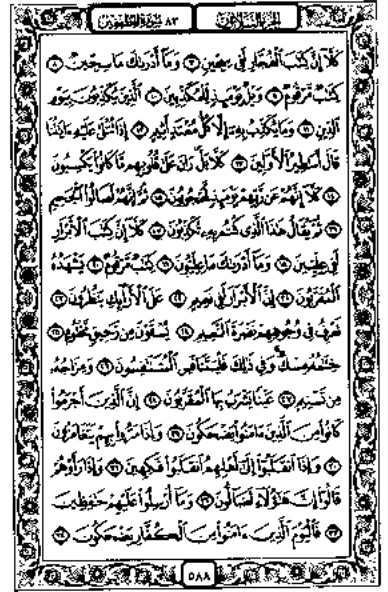 الجزء الثلاثون ٨٣ سورة المطففين
كَلَّآ إِنَّ كِتَٰبَ ٱلۡفُجَّارِ لَفِي سِجِّينٖ ٧ وَمَآ أَدۡرَىٰكَ مَا سِجِّينٞ ٨
كِتَٰبٞ مَّرۡقُومٞ ٩ وَيۡلٞ يَوۡمَئِذٖ لِّلۡمُكَذِّبِينَ ١٠ ٱلَّذِينَ يُكَذِّبُونَ بِيَوۡمِ
ٱلدِّينِ ١١ وَمَا يُكَذِّبُ بِهِۦٓ إِلَّا كُلُّ مُعۡتَدٍ أَثِيمٍ ١٢ إِذَا تُتۡلَىٰ عَلَيۡهِ ءَايَٰتُنَا
قَالَ أَسَٰطِيرُ ٱلۡأَوَّلِينَ ١٣ كَلَّاۖ بَلۡۜ رَانَ عَلَىٰ قُلُوبِهِم مَّا كَانُواْ يَكۡسِبُونَ
١٤ كَلَّآ إِنَّهُمۡ عَن رَّبِّهِمۡ يَوۡمَئِذٖ لَّمَحۡجُوبُونَ ١٥ ثُمَّ إِنَّهُمۡ لَصَالُواْ ٱلۡجَحِيمِ
١٦ ثُمَّ يُقَالُ هَٰذَا ٱلَّذِي كُنتُم بِهِۦ تُكَذِّبُونَ ١٧ كَلَّآ إِنَّ كِتَٰبَ ٱلۡأَبۡرَارِ
لَفِي عِلِّيِّينَ ١٨ وَمَآ أَدۡرَىٰكَ مَا عِلِّيُّونَ ١٩ كِتَٰبٞ مَّرۡقُومٞ ٢٠ يَشۡهَدُهُ
ٱلۡمُقَرَّبُونَ ٢١ إِنَّ ٱلۡأَبۡرَارَ لَفِي نَعِيمٍ ٢٢ عَلَى ٱلۡأَرَآئِكِ يَنظُرُونَ ٢٣
تَعۡرِفُ فِي وُجُوهِهِمۡ نَضۡرَةَ ٱلنَّعِيمِ ٢٤ يُسۡقَوۡنَ مِن رَّحِيقٖ مَّخۡتُومٍ ٢٥
خِتَٰمُهُۥ مِسۡكٞۚ وَفِي ذَٰلِكَ فَلۡيَتَنَافَسِ ٱلۡمُتَنَٰفِسُونَ ٢٦ وَمِزَاجُهُۥ
مِن تَسۡنِيمٍ ٢٧ عَيۡنٗا يَشۡرَبُ بِهَا ٱلۡمُقَرَّبُونَ ٢٨ إِنَّ ٱلَّذِينَ أَجۡرَمُواْ
كَانُواْ مِنَ ٱلَّذِينَ ءَامَنُواْ يَضۡحَكُونَ ٢٩ وَإِذَا مَرُّواْ بِهِمۡ يَتَغَامَزُونَ
٣٠ وَإِذَا ٱنقَلَبُوٓاْ إِلَىٰٓ أَهۡلِهِمُ ٱنقَلَبُواْ فَكِهِينَ ٣١ وَإِذَا رَأَوۡهُمۡ
قَالُوٓاْ إِنَّ هَٰٓؤُلَآءِ لَضَآلُّونَ ٣٢ وَمَآ أُرۡسِلُواْ عَلَيۡهِمۡ حَٰفِظِينَ
٣٣ فَٱلۡيَوۡمَ ٱلَّذِينَ ءَامَنُواْ مِنَ ٱلۡكُفَّارِ يَضۡحَكُونَ ٣٤
٥٨٨